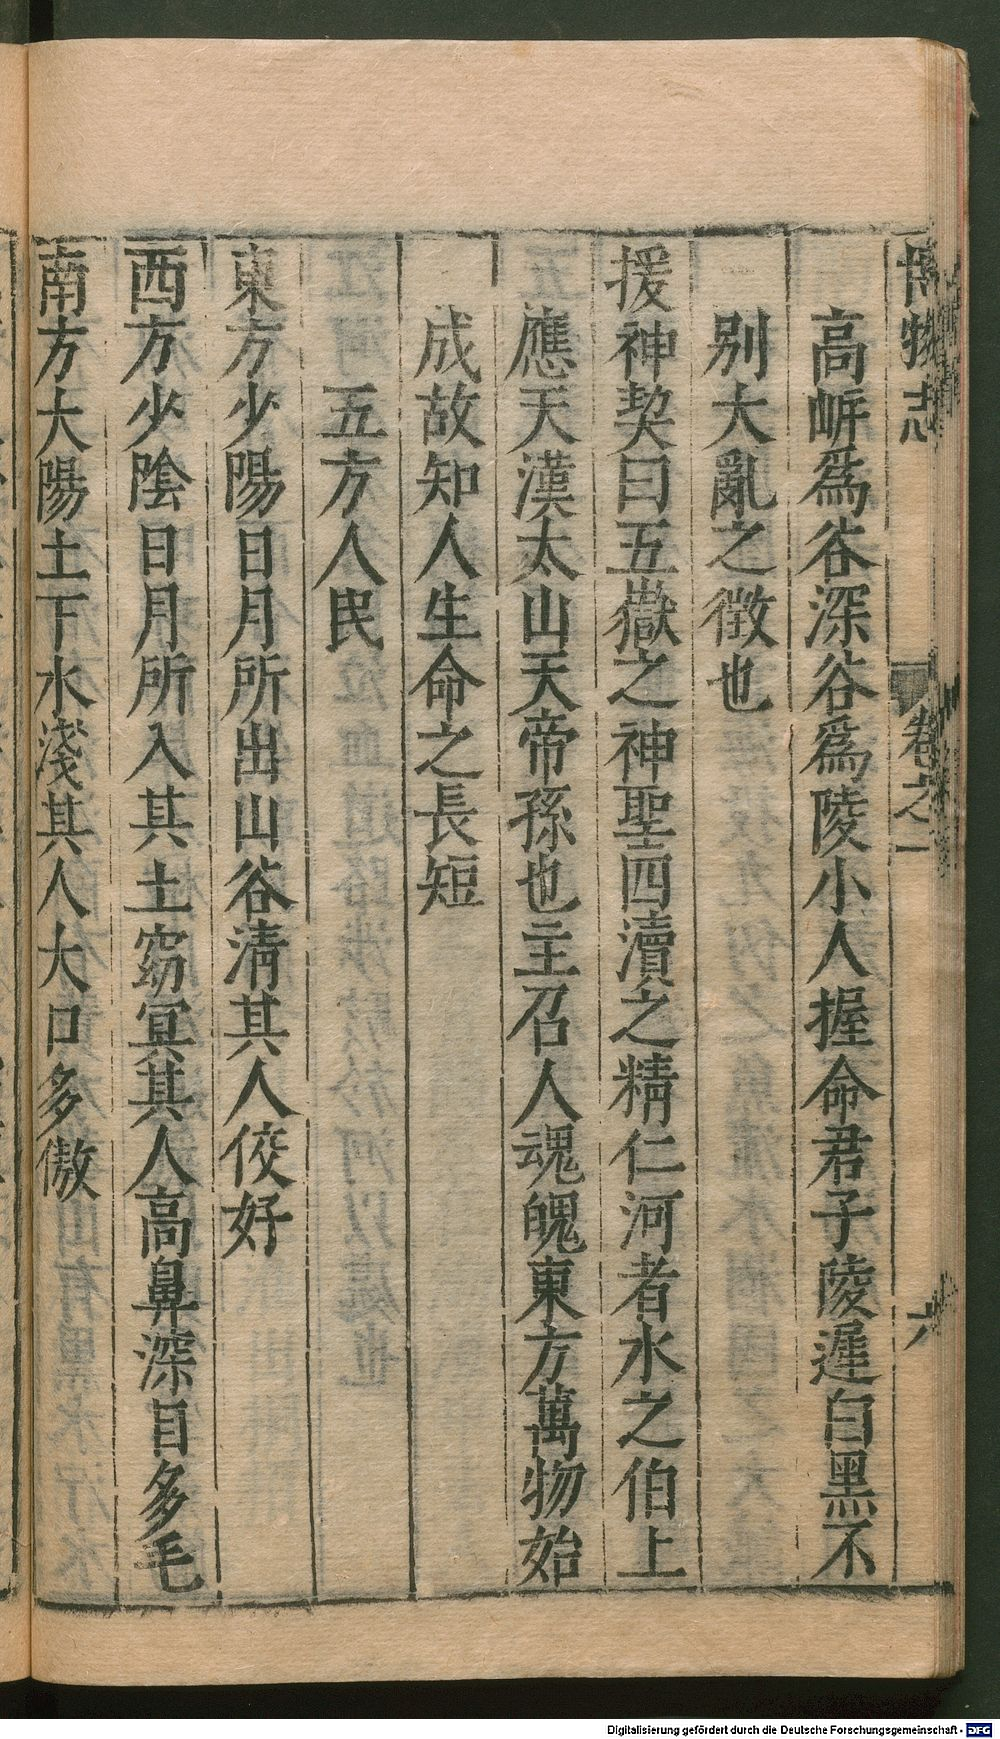 博物志 卷之一 六
高㟁爲谷深谷爲陵小人握命君子陵遲白黑不
别大亂之徴也
援神契曰五嶽之神聖四瀆之精仁河者水之伯上
應天漢太山天帝孫也主召人魂魄東方萬物始
成故知人生命之長短
五方人民
東方少陽日月所出山谷淸其人佼好
西方少陰日月所入其土窈冥其人高鼻深目多毛
南方大陽土下水淺其人大口多傲
Digitalisierung gefördert durch die Deutsche Forschungsgemeinschaft - DFG